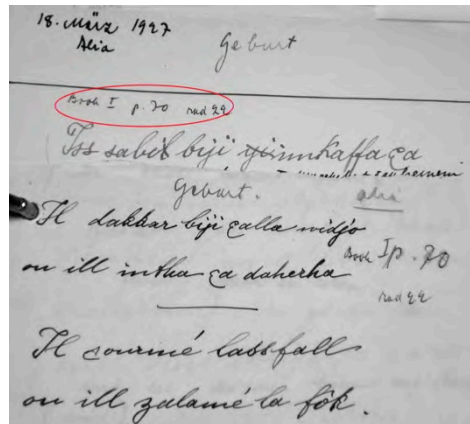 18. März 1927
Alia Geburt
Book I p. 70 rad 22
Iss sabib biji ça
Geburt. alia
Il dakkar biji çalla widjo
ou ill intha ça daherha
Book I p. 70
rad 22
Il lassfall
ou ill zalamé la fök.